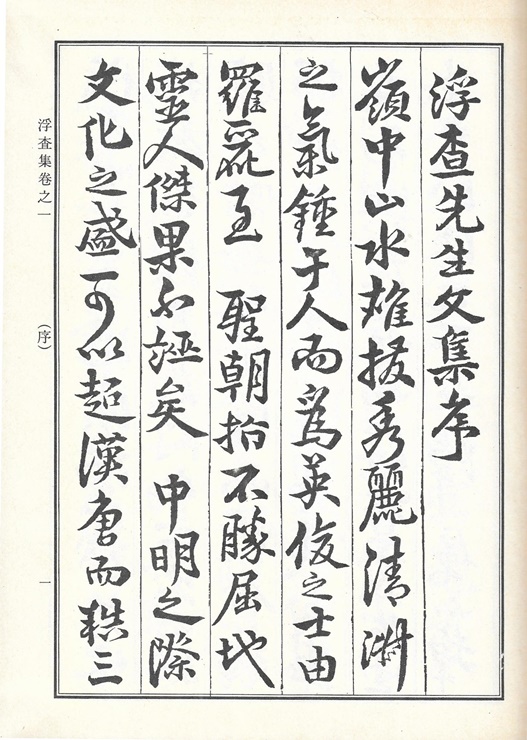 浮査先生文集序
嶺中山水雄拔秀麗清淑
之氣鍾于人而爲英俊之士由
羅麗至 聖朝指不勝屈地
靈人傑果不誣矣 中明之際
文化之盛可以超漢唐而三
浮査集卷之一
(序)
一